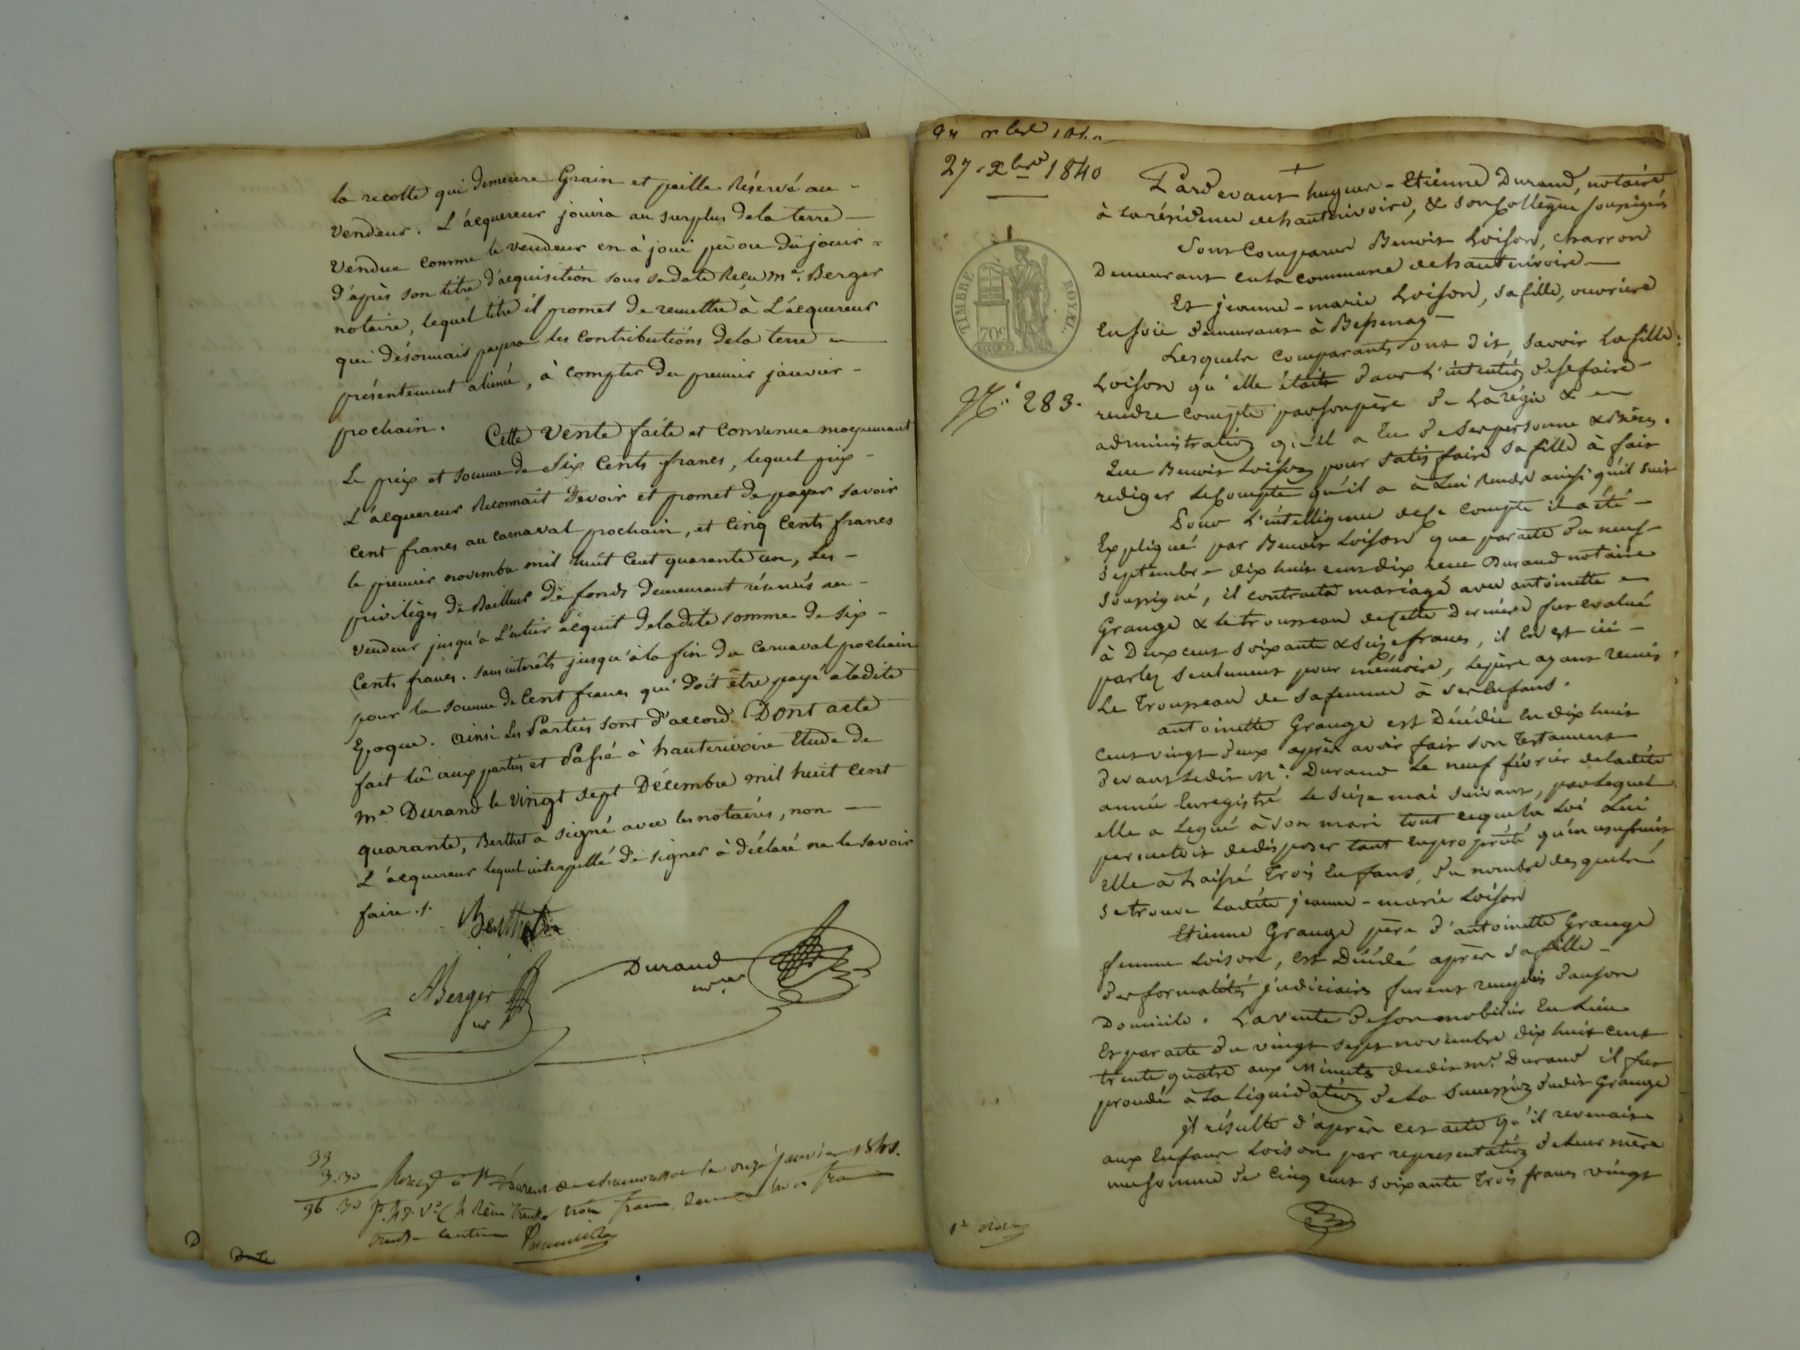 la recolte qui demeure Grain et paille Réservé au -
vendeur. L'acquereur jouira au surplus dela terre -
Vendue comme le vendeur en à joui pû ou dû jouir -
d'après son titre d'acquisition sous sadate Reçu me. Berger
notaire, lequel titre il promet de remettre à L'acquereur
qui désormais payera les contributions dela terre
présentement aliéné, à compter du premier janvier -
prochain.
Cette Vente faite et convenue moyennant
Le prix et somme de Six Cents francs, lequel prix -
L'acquereur Reconnait Devoir et promet de payer savoir
cent francs au carnaval prochain, et Cinq Cents francs
le premier novembre mil huit Cent quarante un, Les -
privilèges de Bailleur de fonds demeurant réservés au -
vendeur jusqu'a L'entier acquit deladite somme de six -
Cents francs. sans interêts jusqu'à la fin du Carnaval prochain
pour la somme de Cent francs qui doit être payé àladite
Epoque. Ainsi Les Parties sont d'accord. Dont acte
fait lû aux parties et Passé à hauterivoire Etude de
me Durand le vingt sept Décembre mil huit cent
quarante, Berthet à signé avec les notaires, non -
L'acquereur lequel interpellé de signer à déclaré ne le savoir
faire ./.
Berthet
Durand
nre
Berger
nre
33
3.30
36 30
St Laurent de chamousset le onze janvier 1841.
trente trois francs
trente centimes
27 - Xbre 1840
TIMBRE ROYAL
70c
No. 283.
Pardevant hugues - Etienne Durand, notaire
à la résidence dehauterivoire, & son Collègue soussignés
Sont Comparus Benoit Loison, charron
Demeurant en la commune dehauterivoire -
Et jeanne - marie Loison, sa fille, ouvrière
En soie demeurant à Bessenay -
Lesquels comparants ont dit, savoir La fille
Loison qu'elle était dans L'intention desefaire -
rendre compte parsonpère de La régie &
administration qu'il a Eu de Sa personne & Biens.
Que Benoit Loison pour satisfaire sa fille à fait
rediger LeCompte qu'il a à Lui Rendre ainsi qu'il suit
Pour L'intelligence dece compte il a été -
Expliqué par Benoit Loison que par acte du neuf
septembre dix huit cent dix reçu Durand notaire
soussigné, il contracta mariage avec antoinette
Grange & le trousseau decette dernière fut evalué
à Deux cent soixante & seize francs, il En est ici -
parlé seulement pour mémoire, Lepère ayant remis
Le Trousseau de safemme à ses Enfans.
antoinette Grange est Décédée En dix huit
Cent vingt deux après avoir fait son Testament
devant Ledit Me. Durand Le neuf février de ladite
année Enregistré Le seize mai suivant, par Lequel
elle a Legué à son mari tout ceque la Loi Lui
permettoit dedisposer tant En propriété qu'en usufruit
elle a Laissé Trois Enfans, du nombre desquels
setrouve Ladite jeanne - marie Loison
Etienne Grange père d'antoinette Grange
femme Loison, est Décédé après sa fille -
des formalités judiciaires furent remplies danson
Domicile. La vente deson mobilier En Lieu
Et par acte du vingt sept novembre dix huit cent
trente quatre aux Minutes dudit Me. Durand il fut
procédé à La Liquidation de La Succession dudit Grange
il résulte d'après cet acte qu'il revenait
aux Enfans Loison par représentation deleur mère
une somme de cinq cent soixante Trois francs vingt
1er